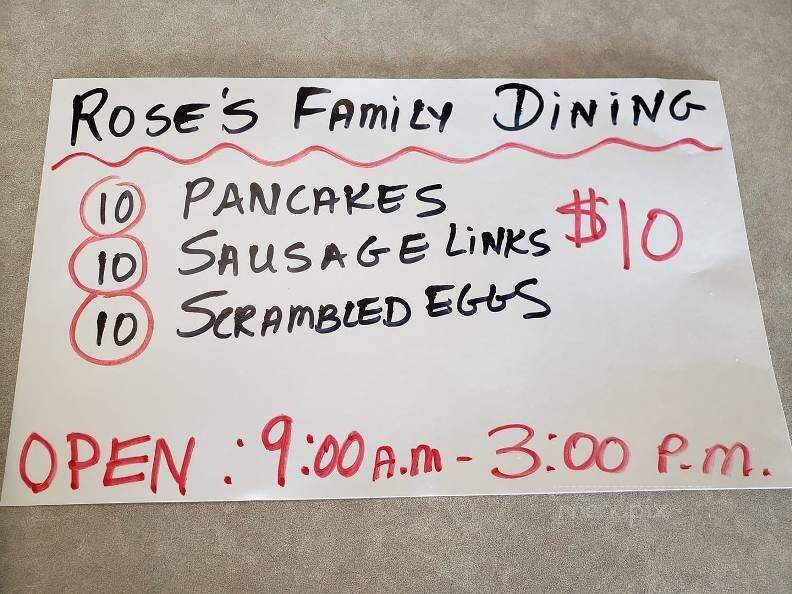 ROSE'S FAMILY DINING
10 PANCAKES $10
10 SAUSAGE LINKS
10 SCRAMBLED EGGS
OPEN : 9:00 A.M - 3:00 P.M.
menupix